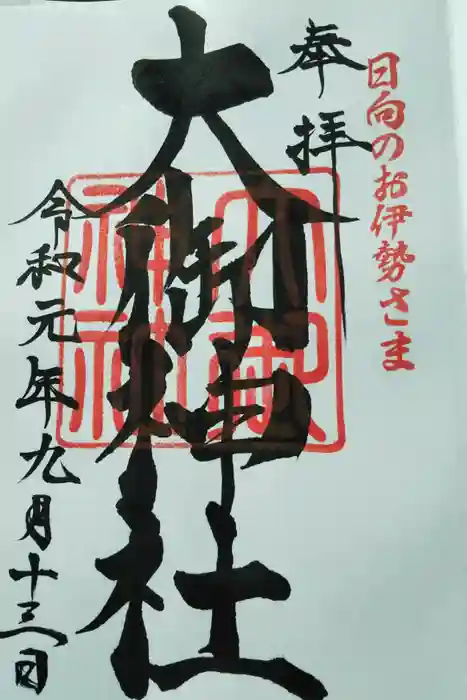 日向のお伊勢さま
奉拝
大御神社
令和元年九月十三日
大御神社